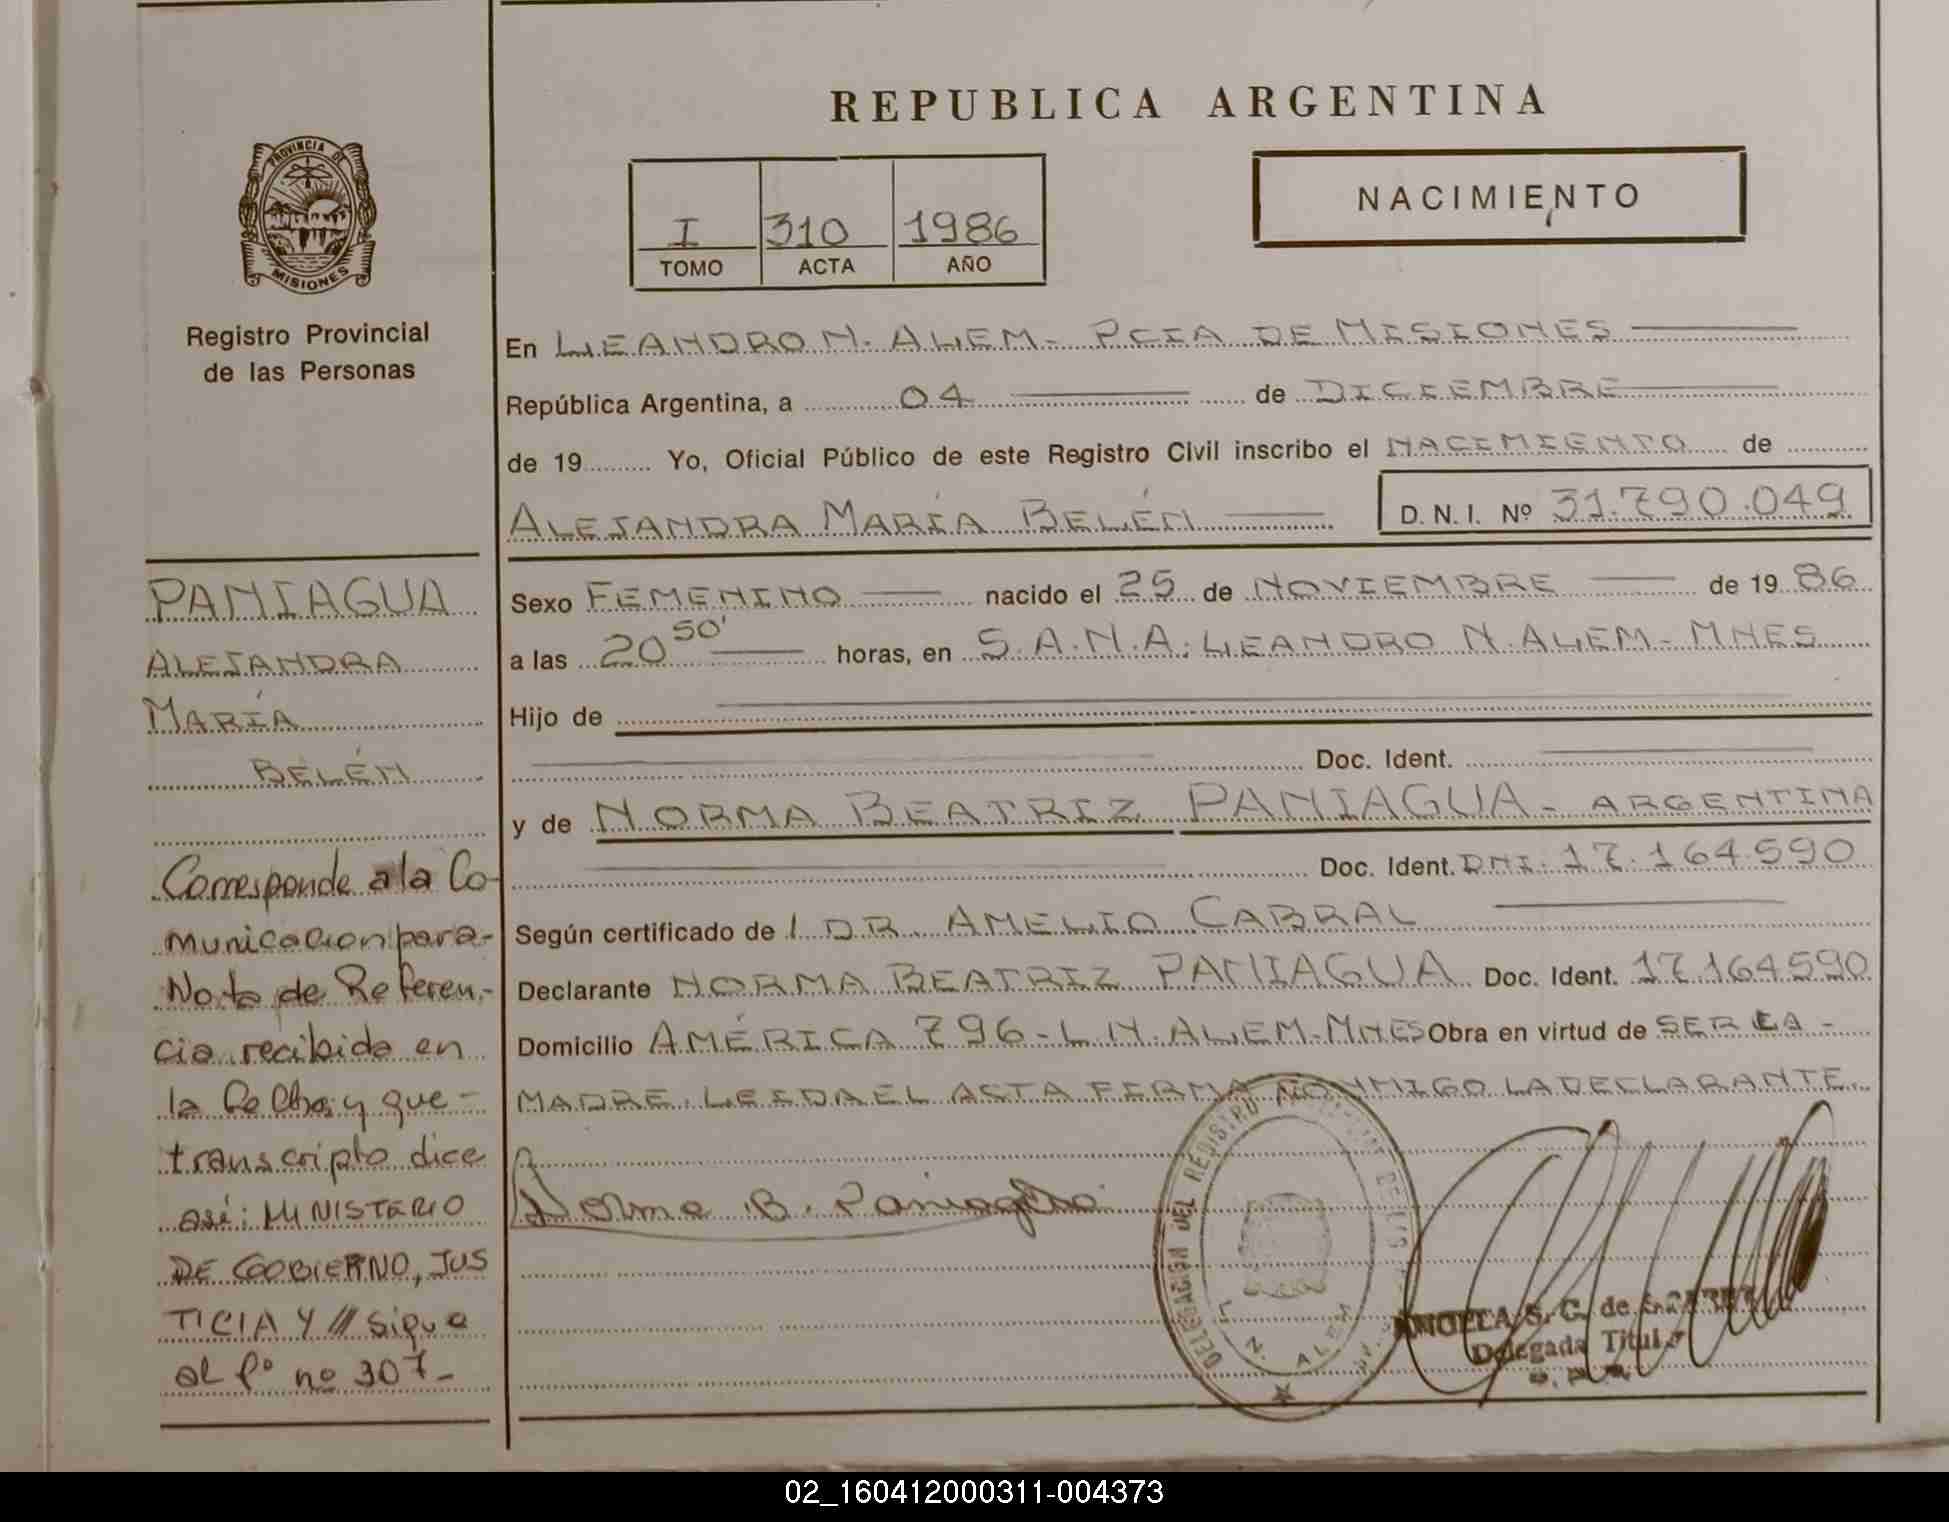 REPUBLICA ARGENTINA
PROVINCIA DE
MISIONES
Registro Provincial
de las Personas
I 310 1986
TOMO ACTA AÑO
NACIMIENTO
En LEANDRO N. ALEM - PCIA DE MISIONES
República Argentina, a 04 de DICIEMBRE
de 19 Yo, Oficial Público de este Registro Civil inscribo el NACIMIENTO de
ALEJANDRA MARÍA BELÉN D. N. I. Nº 31.790.049
Sexo FEMENINO nacido el 25 de NOVIEMBRE de 19 86
a las 20 50' horas, en S.A.N.A. LEANDRO N. ALEM - MNES
Hijo de
Doc. Ident.
y de NORMA BEATRIZ PANIAGUA - ARGENTINA
Doc. Ident. DNI. 17.164.590
Según certificado de / DR. AMELIO CABRAL
Declarante NORMA BEATRIZ PANIAGUA Doc. Ident. 17.164.590
Domicilio AMÉRICA 796 - L.N. ALEM - MNES Obra en virtud de SER LA -
MADRE. LEIDA EL ACTA FIRMA CONMIGO LA DECLARANTE.
Norma B. Paniagua
DELEGACION DEL REGISTRO
L. N. ALEM
ANGELA S. G. de
Delegada Titular
PANIAGUA
ALEJANDRA
MARÍA
BELÉN
Corresponde a la Co-
municacion para -
Nota de Referen -
cia recibida en
la fecha y que -
transcripto dice
así: MINISTERIO
DE GOBIERNO, JUS
TICIA Y /// sigue
al fº nº 307 -
02_160412000311-004373